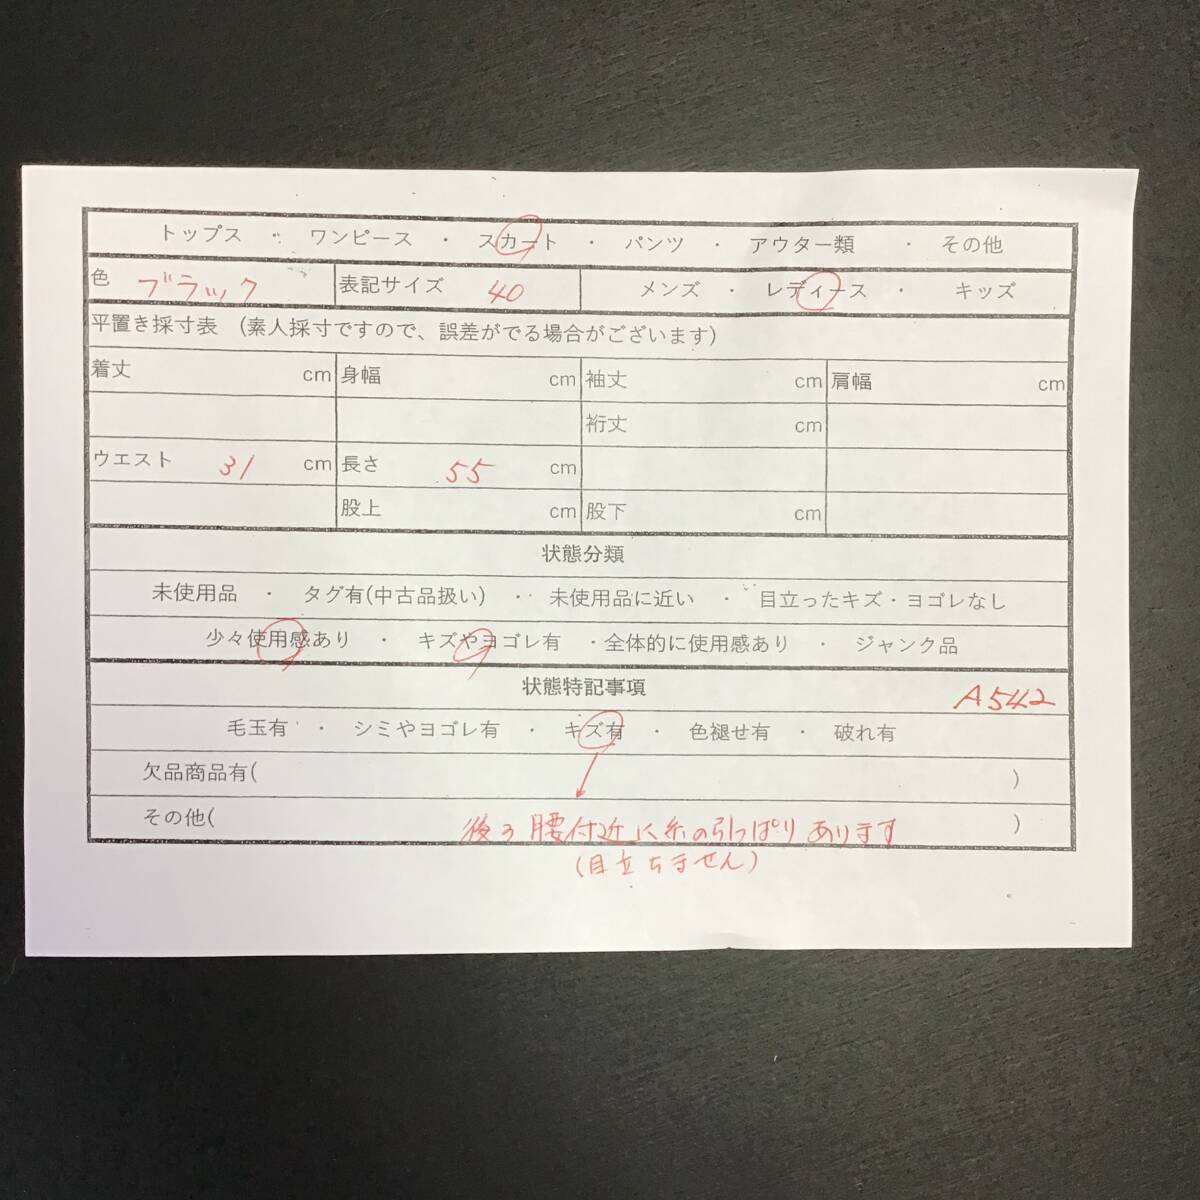 トップス ・ ワンピース ・ スカート ・ パンツ ・ アウター類 ・ その他
色 ブラック 表記サイズ 40 メンズ ・ レディース ・ キッズ
平置き採寸表 (素人採寸ですので、誤差がでる場合がございます)
着丈 cm 身幅 cm 袖丈 cm 肩幅 cm
裄丈 cm
ウエスト 31 cm 長さ 55 cm
股上 cm 股下 cm
状態分類
未使用品 ・ タグ有(中古品扱い) ・ 未使用品に近い ・ 目立ったキズ・ヨゴレなし
少々使用感あり ・ キズやヨゴレ有 ・全体的に使用感あり ・ ジャンク品
状態特記事項 A542
毛玉有 ・ シミやヨゴレ有 ・ キズ有 ・ 色褪せ有 ・ 破れ有
欠品商品有( )
その他( )
後ろ腰付近に糸の引っぱりあります
(目立ちません)